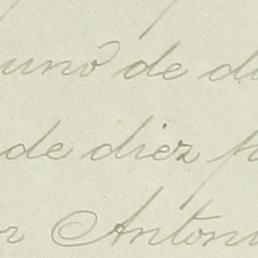 uno de di
de diez p
or Antoni